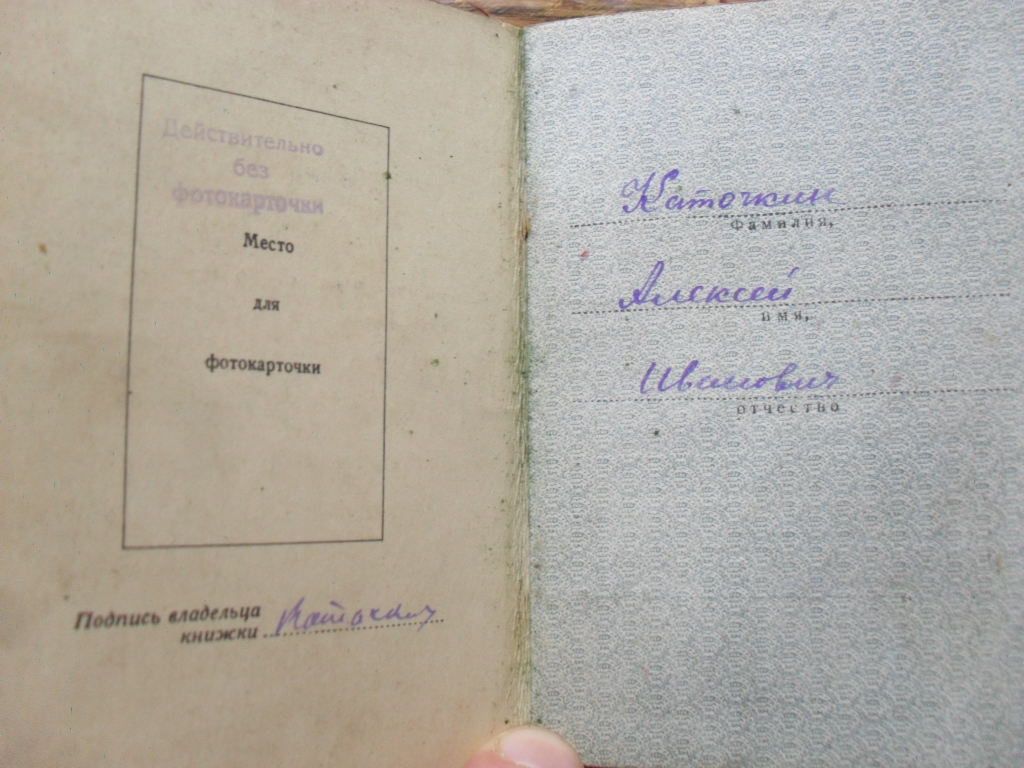 Действительно
без
фотокарточки
Место
для
фотокарточки
Подпись владельца
книжки Каточкин
Каточкин
фамилия,
Алексей
имя,
Иванович
отчество